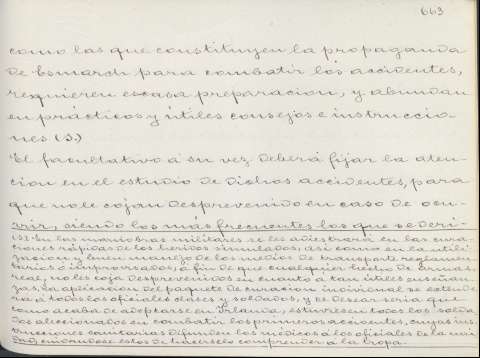 663
como las que constituyen la propaganda
de Esmarch para combatir los accidentes,
requieren escasa preparacion, y abundan
en prácticos y útiles consejos e instruccio-
nes (1.)
El facultativo a su vez deberá fijar la aten-
cion en el estudio de dichos accidentes, para
que no le cojan desprevenido en caso de ocu-
rrir, siendo los más frecuentes los que se deri-
En las maniobras militares se les adiestrará en las cura-
ciones rápidas de los heridos simulados, asi como en la utili-
zacion y buen manejo de los medios de transporte reglamen-
tarios é improvisados, a fin de que cualquier hecho de armas
real, no les coja desprevenidos en cuanto a tan útiles enseñan-
zas. La aplicacion del paquete de curacion individual se extende-
rá a todos los oficiales clases y soldados, y de desear seria que
como acaba de adoptarse en Irlanda, estuviesen todos los solda-
dos aleccionados en combatir los primeros accidentes, cuyas ins-
trucciones sanitarias difunden los médicos á los oficiales de la uni-
dad, cuidandose estos de hacerselo comprender a la tropa.